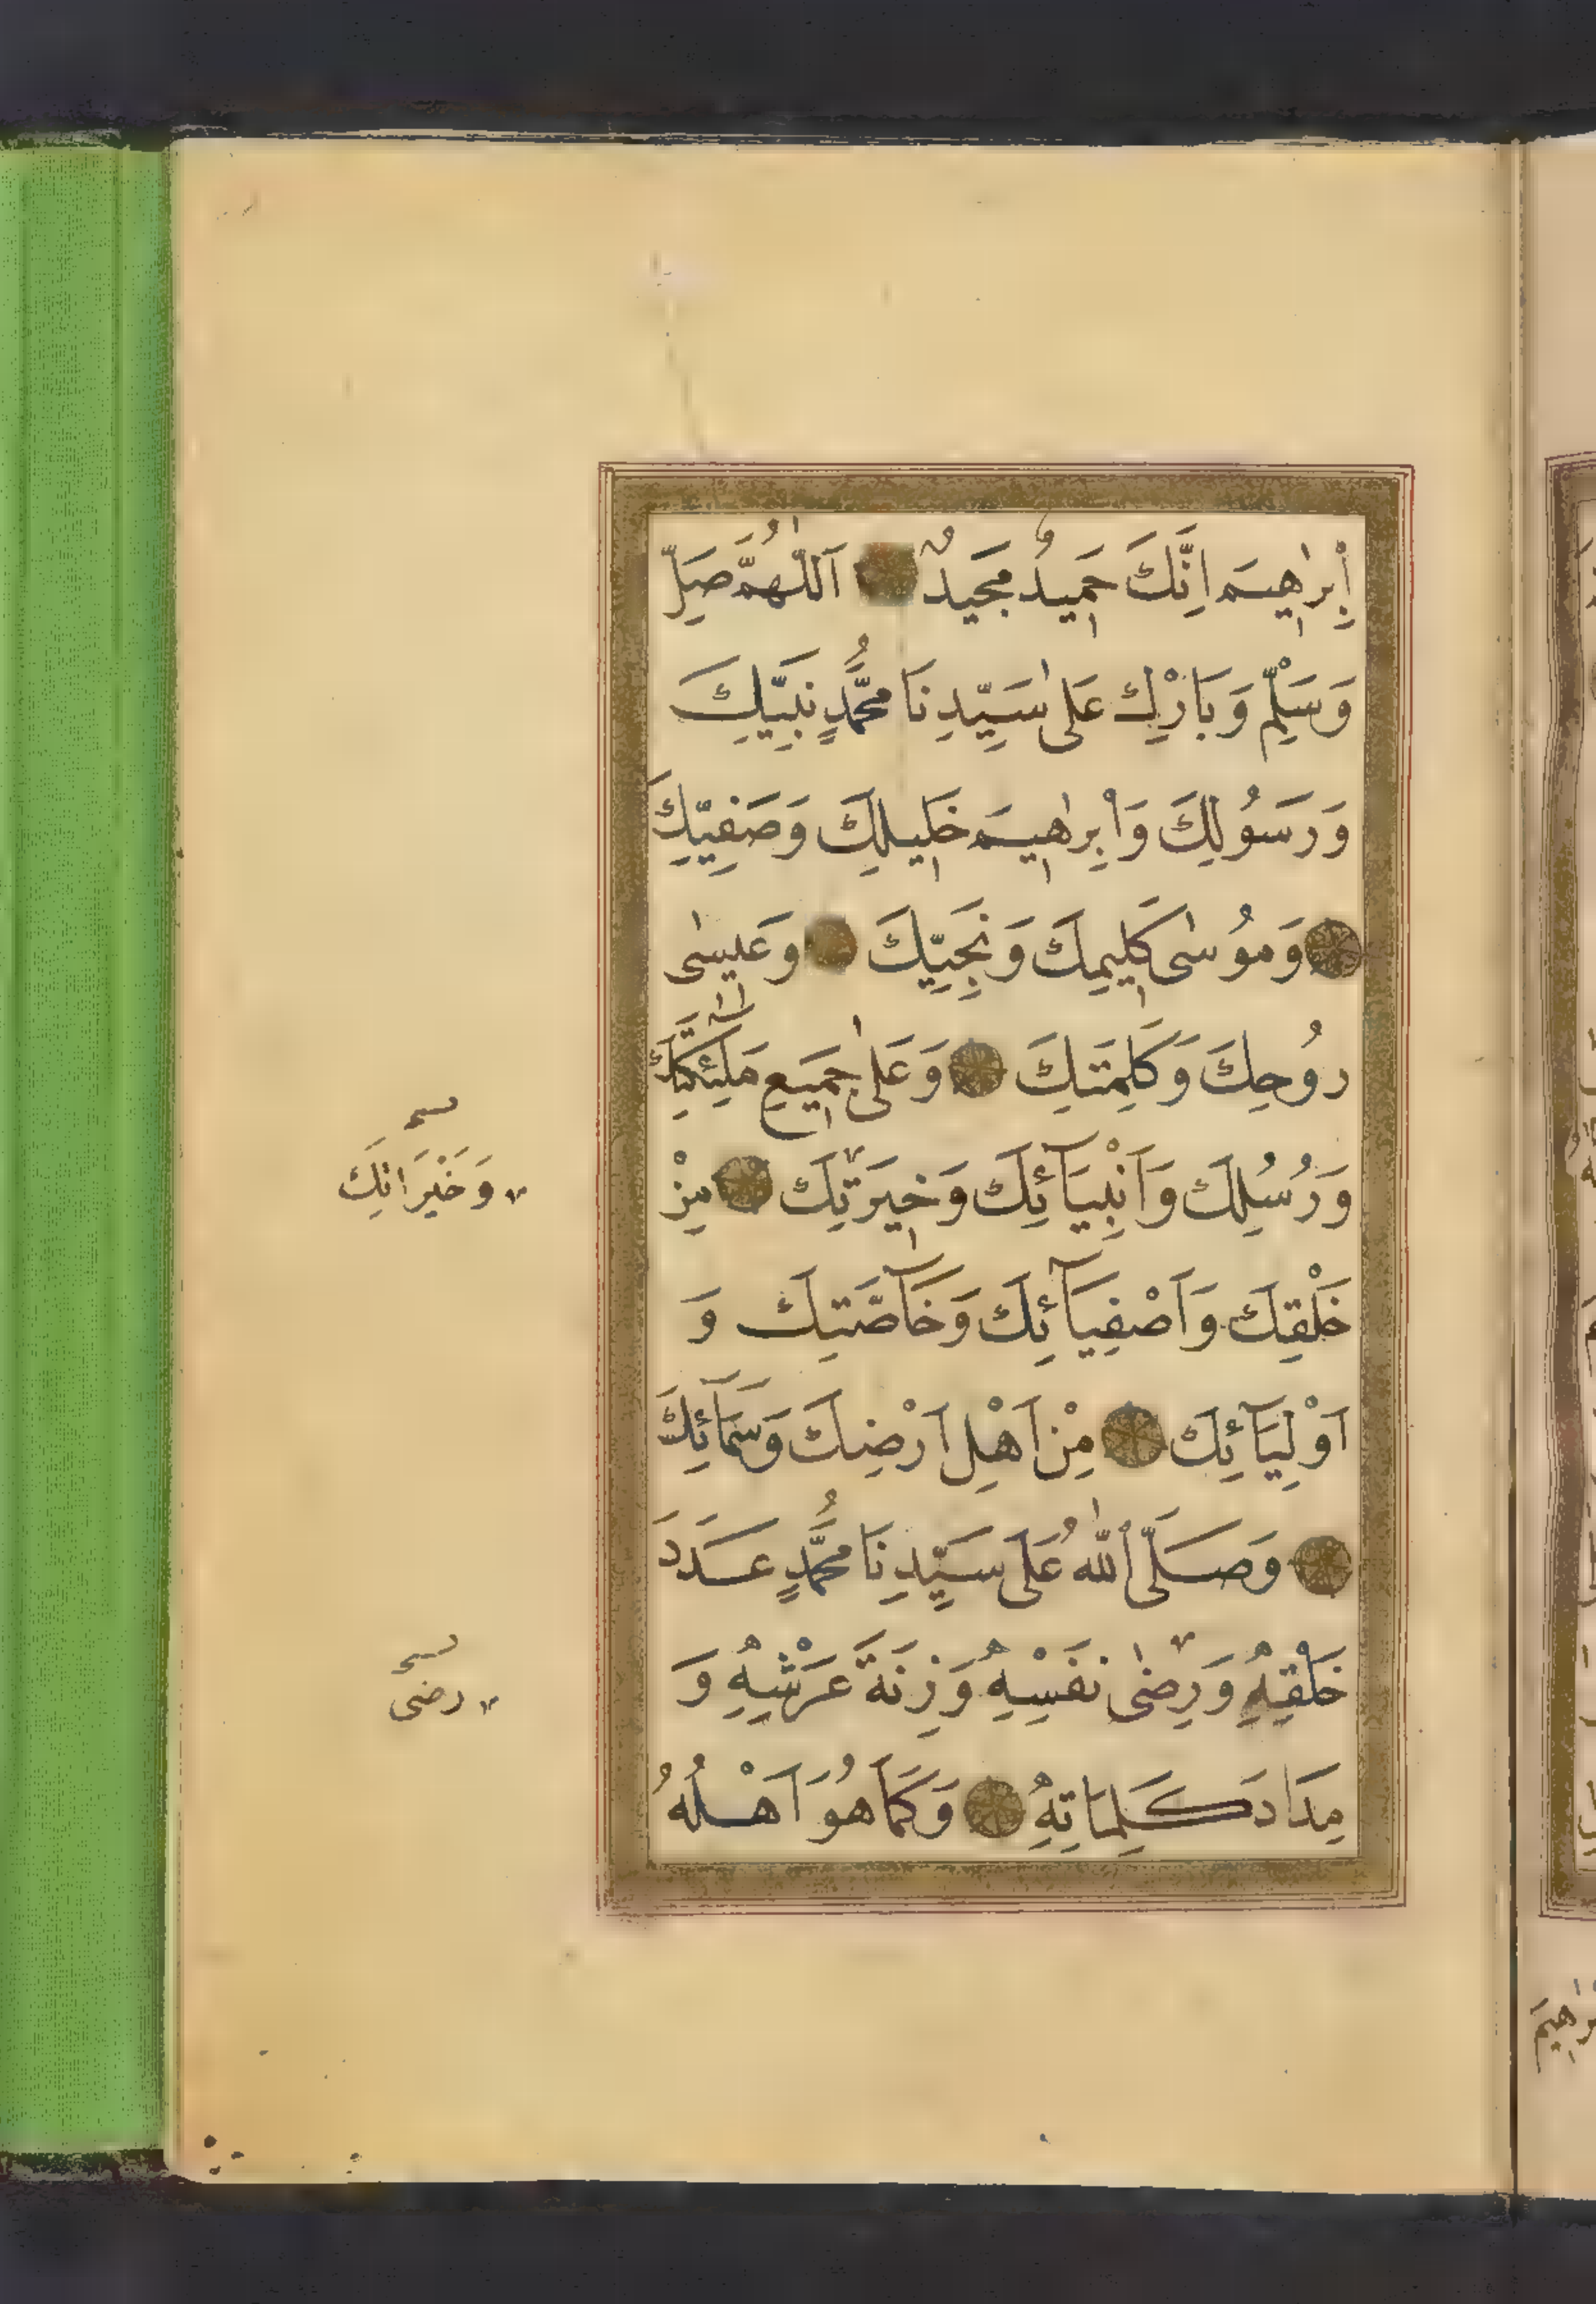 اِبْرٰهِيمَ اِنَّكَ حَمِيدٌ مَجِيدٌ اَللّٰهُمَّ صَلِّ
وَسَلِّمْ وَبَارِكْ عَلٰى سَيِّدِنَا مُحَمَّدٍ نَبِيِّكَ
وَرَسُولِكَ وَاِبْرٰهِيمَ خَلِيلِكَ وَصَفِيِّكَ
وَمُوسٰى كَلِيمِكَ وَنَجِيِّكَ وَعِيسٰى
رُوحِكَ وَكَلِمَتِكَ وَعَلٰى جَمِيعِ مَلٰئِكَتِكَ
وَرُسُلِكَ وَاَنْبِيَآئِكَ وَخِيَرَتِكَ مِنْ
خَلْقِكَ وَاَصْفِيَآئِكَ وَخَآصَّتِكَ وَ
اَوْلِيَآئِكَ مِنْ اَهْلِ اَرْضِكَ وَسَمَآئِكَ
وَصَلَّى اللّٰهُ عَلَى سَيِّدِنَا مُحَمَّدٍ عَدَدَ
خَلْقِهِ وَرِضٰى نَفْسِهِ وَزِنَةَ عَرْشِهِ وَ
مِدَادَ كَلِمَاتِهِ وَكَمَا هُوَ اَهْلُهُ
وَخَيْرَاتِكَ
رضى